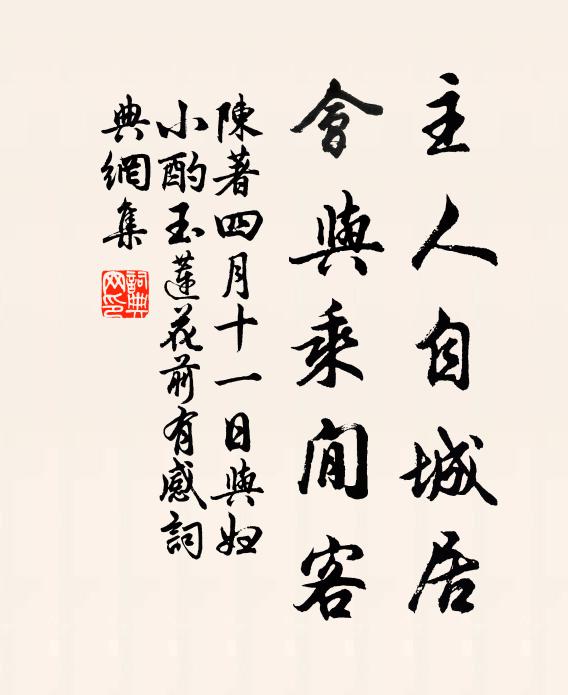 主人自城居
會與乘閒客
陳著四月十一日與妇
小酌玉蓮花前有感詞
典網集
詞典網印